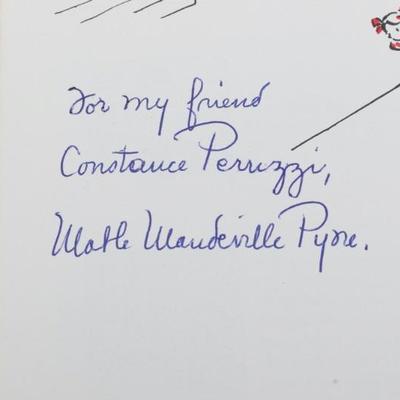 For my friend
Constance Peruzzi,
Mable Mandeville Pyne.